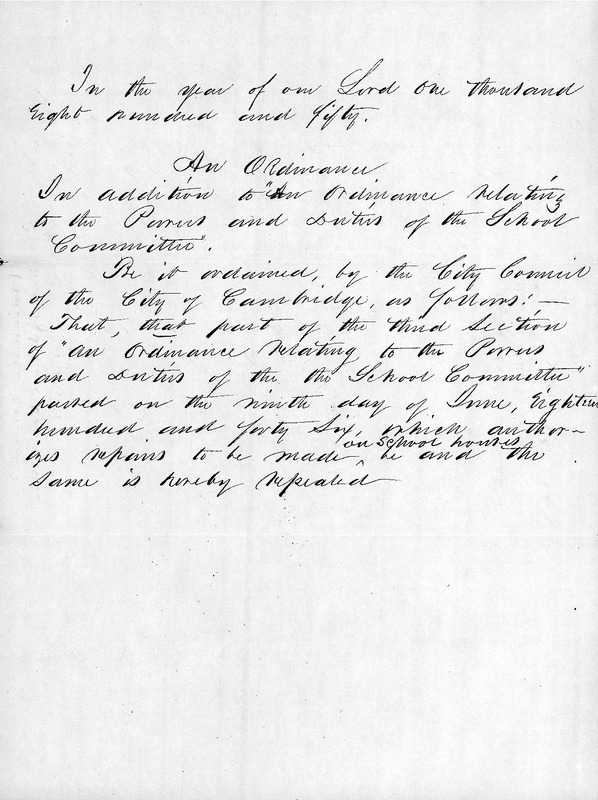 In the year of our Lord one thousand
Eight hundred and fifty.
An Ordinance
In addition to "An Ordinance relating
to the Powers and Duties of the School
Committee".
Be it ordained, by the City Council
of the City of Cambridge, as follows:—
That, that part of the third Section
of "an Ordinance relating to the Powers
and Duties of the the School Committee"
passed on the ninth day of June, Eighteen
hundred and forty Six, which author-
on School houses
izes repairs to be made ^ be and the
same is hereby repealed